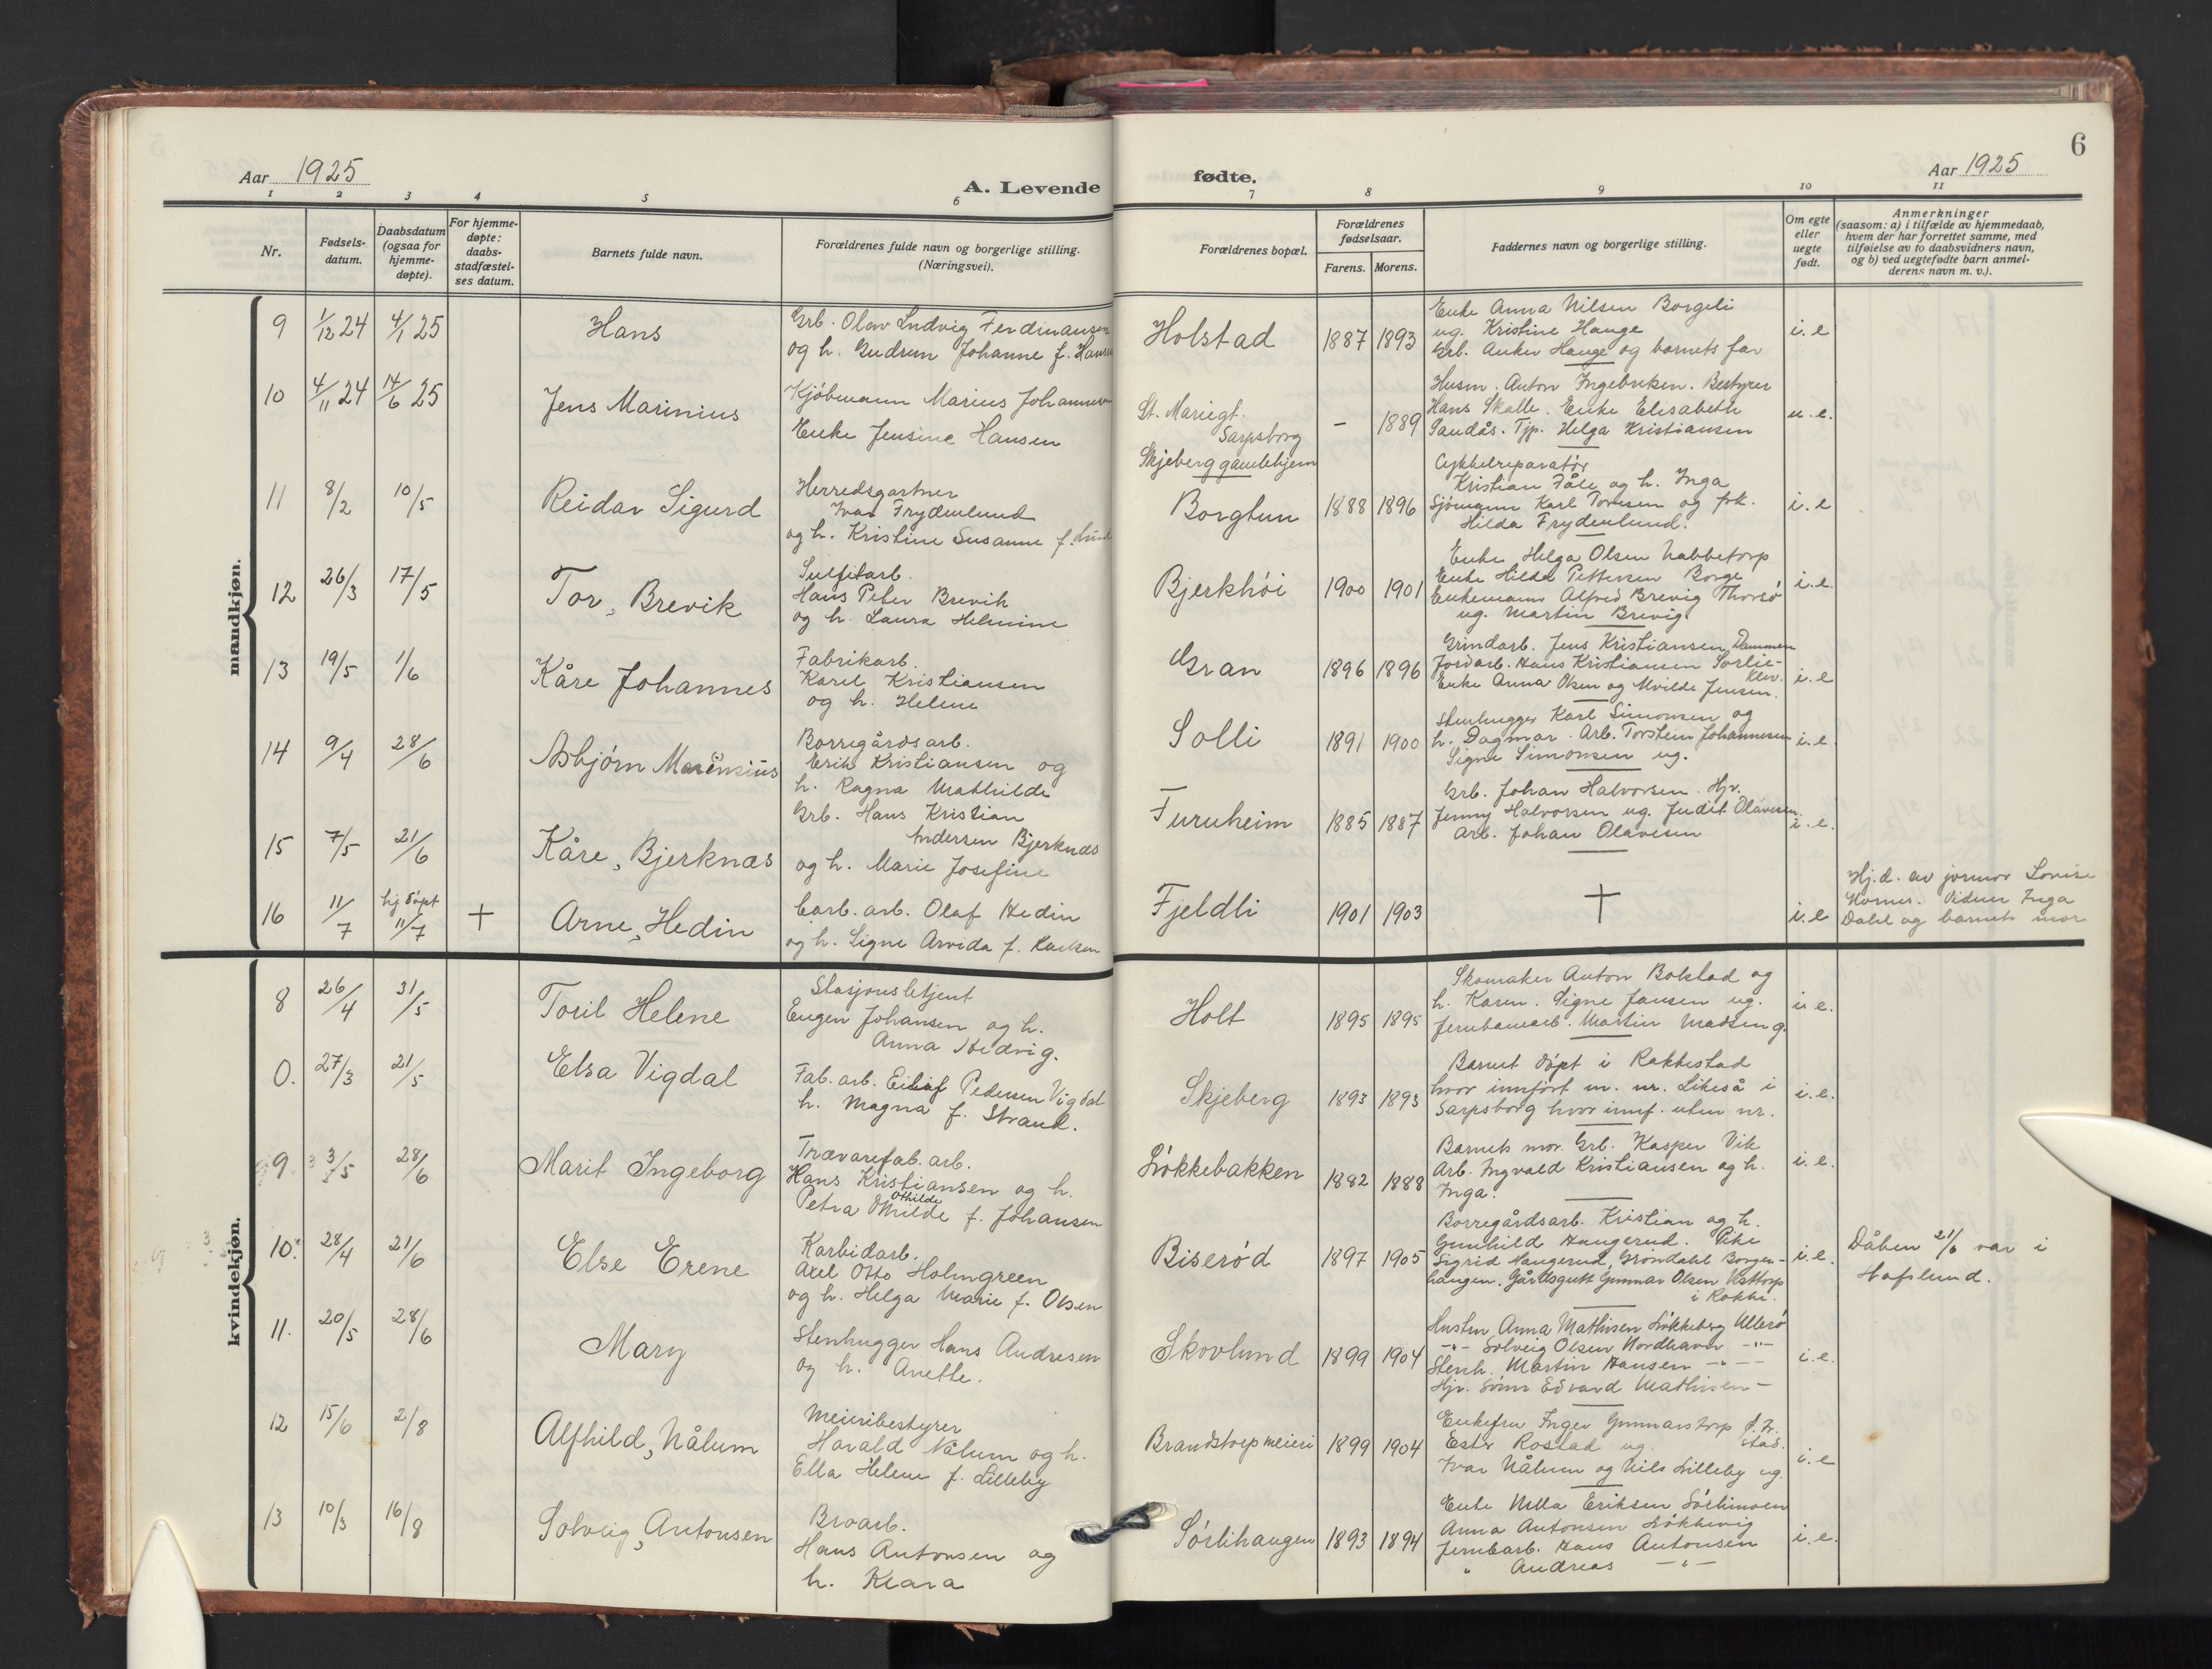 6
Aar 1925
A. Levende fødte.
Aar 1925
1 2 3 4 5 6 7 8 9 10 11
Nr.
Fødsels-
datum.
Daabsdatum
(ogsaa for
hjemme-
døpte).
For hjemme-
døpte:
daabs-
stadfæstel-
ses datum.
Barnets fulde navn.
Forældrenes fulde navn og borgerlige stilling.
(Næringsvei).
Forældrenes bopæl.
Forældrenes
fødselsaar.
Farens. Morens.
Faddernes navn og borgerlige stilling.
Om egte
eller
uegte
født.
Anmerkninger
(saasom: a) i tilfælde av hjemmedaab,
hvem der har forrettet samme, med
tilføielse av to daabsvidners navn,
og b) ved uegtefødte barn anmel-
derens navn m. v.).
mandkjøn.
9 1/12 24 4/1 25 Hans
Grb. Olav Ludvig Ferdinansen
og h. Gudrun Johanne f. Hansen
Holstad 1887 1893
Enke Anna Nilsen Borgeli
ug. Kristine Hauge
Grb. Anker Hauge og barnets far
i. e
10 4/11 24 14/6 25 Jens Marinius
Kjøbmann Marius Johannesen
Enke Jensine Hansen
St. Mariegt.
Sarpsborg
- 1889
Husm. Anton Ingebriksen. Bestyrer
Hans Skolle. Enke Elisabeth
Sandås. Tjp. Helga Kristiansen
u. e.
11 8/2 10/5 Reidar Sigurd
Herredsgartner
Ivar Frydenlund
og h. Kristine Susanne f. Lund
Skjeberg gamlehjem
Borgtun 1888 1896
Cykkelreparatør
Kristian Fåle og h. Inga
Sjømann Karl Tomsen og frk.
Hilda Frydenlund.
i. e
12 26/3 17/5 Tor, Brevik
Sulfitarb.
Hans Peter Brevik
og h. Laura Helmine
Bjerkhöi 1900 1901
Enke Helga Olsen Nabbetorp
Enke Hilda Pettersen Borge
Enkemann Alfred Brevig Thorsø
ug. Martin Brevig
i. e.
13 19/5 1/6 Kåre Johannes
Fabrikarb.
Karel Kristiansen
og h. Helene
Gran 1896 1896
Grindarb. Jens Kristiansen Dammen
Jordarb. Hans Kristiansen Sorlie-
klev.
Enke Anna Olsen og Alvilde Jensen.
i. e
14 9/4 28/6 Asbjørn
Borregårdsarb.
Erik Kristiansen og
h. Ragna Mathilde
Solli 1891 1900
Stenhugger Karl Simonsen og
h. Dagmar. Arb. Torstein Johannesen
Signe Simonsen ug.
i. e.
15 7/5 21/6 Kåre, Bjerknæs
Grb. Hans Kristian
Andersen Bjerknæs
og h. Marie Josefine
Furuheim 1885 1887
Grb. Johan Halvorsen. Hjv.
Jenny Halvorsen ug. Judit Olavesen.
Arb. Johan Olavesen
i. e.
16 11/7 hj. døpt 11/7 + Arne, Hedin
Carb. arb. Olaf Hedin
og h. Signe Arvida f. Karlsen
Fjeldli 1901 1903 † i. e
Hj. d. av jormor Lovise
Hornes. Vidner Inga
Dahl og barnets mor
kvindekjøn.
8 26/4 31/5 Toril Helene
Stasjonsbetjent
Eugen Johansen og h.
Anna Hedvig.
Holt 1895 1895
Skomaker Anton Bokstad og
h. Karen. Signe Jansen ug.
Jernbanearb. Martin Madsen g.
i. e.
0. 27/3 21/5 Elsa Vigdal
Fab. arb. Eilif Pedersen Vigdal
h. Magna f. Strand.
Skjeberg 1893 1893
Barnet døpt i Rakkestad
hvor innført u. nr. Likeså i
Sarpsborg hvor innf. uten nr.
i. e.
9. 3/5 28/6 Marit Ingeborg
Trævarefab. arb.
Hans Kristiansen og h.
Othilde
Petra f. Johansen
Løkkebakken 1882 1888
Barnets mor. Grb. Kasper Vik
Arb. Ingvald Kristiansen og h.
Inga.
i. e.
10. 28/4 21/6 Else Erene
Karbidarb.
Axel Otto Holmgreen
og h. Helga Marie f. Olsen
Biserød 1897 1905
Borregårdsarb. Kristian og h.
Gunhild Haugerud. Pike
Sigrid Haugerud, Grøndahl Borgen-
haugen. Gårdsgutt Gunnar Olsen Vattorp
i Rokke.
i. e.
Dåben 21/6 var i
Hafslund.
11. 20/5 28/6 Mary
Stenhugger Hans Andresen
og h. Anette.
Skovlund 1899 1904
Hustru Anna Mathisen Løkkeberg Ullerø
-"- Solveig Olsen Nordhavn -"-
Stenh. Martin Hansen -"-
Hjv. sønn Edvard Mathisen -
i. e.
12 15/6 2/8 Alfhild, Nålum
Meieribestyrer
Harald Nålum og h.
Ella Helene f. Lilleby
Brandstorp meieri 1899 1904
Enkefru Inger Gunnarstorp f. Fr.
stad.
Ester Rostad ug.
Ivar Nålum og Nils Lilleby ug.
i. e
13 10/3 16/8 Solveig, Antonsen
Broarb.
Hans Antonsen og
h. Klara
Sørlihaugen 1893 1894
Enke Eriksen Sørlimoen
Anna Antonsen Løkkevig
Jernbarb. Hans Antonsen
" Andreas -"-
i. e.